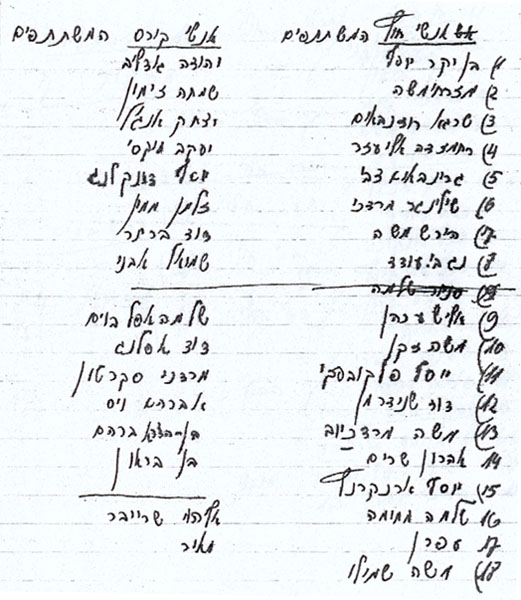 אנשי חוץ המשתתפים
1) בן יקר יוסף
2) מזרחי משה
3) שרגא רוזנהאים
4) רחמזדה אליעזר
5) צבי
6) שילינגר מרדכי
7) הירש משה
8) נגבי עודד
9) שלמה
9)
10) משה זקן
11) יוסף פלקובסקי
12) דוד שנידרמן
13) משה מרדכיוב
14 אהרון שרים
15) יוסף ארנקרנץ
16 שלמה חמימה
17 עפרן
18) משה שמילו
אנשי קורס המשתתפים
יהודה גדליב
שמחה זימון
יצחק אנגל
יעקב מיקסי
יוסף דונקלנג
זלמן ממן
דוד ברנר
שמואל אבני
שלמה אפלבוים
דוד אפלנג
מרדכי סקרטון
אברהם ויס
אברהם
בני בראון
אליהו שרייבר
מאיר